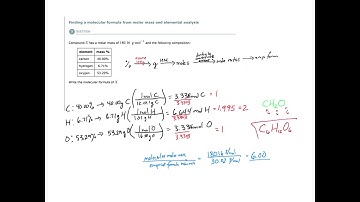 Finding a molecular formula from molar mass and elemental analysis
QUESTION
Compound X has a molar mass of 180.16 g mol⁻¹ and the following composition:
element mass %
carbon 40.00%
hydrogen 6.71%
oxygen 53.29%
Write the molecular formula of X.
% → g → moles → mole ratios → emp form
C: 40.00% → 40.00g C (1 mol C / 12.01g C) = 3.33 mol C = 1
H: 6.71% → 6.71g H (1 mol H / 1.01 g H) = 6.64 mol H = 1.995 = 2
O: 53.29% → 53.29g O (1 mol O / 16.00g O) = 3.33 mol O = 1
CH₂O
C₆H₁₂O₆
molecular molar mass / empirical formula molar mass = 180.16 g/mol / 30.03 g/mol = 6.00